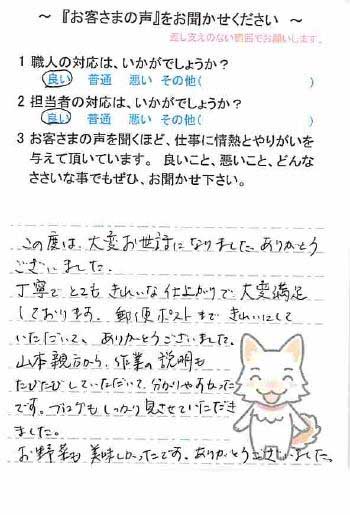 ～ 『お客さまの声』をお聞かせください ～
差し支えのない範囲でお願いします。
1 職人の対応は、いかがでしょうか?
良い 普通 悪い その他( )
2 担当者の対応は、いかがでしょうか?
良い 普通 悪い その他( )
3 お客さまの声を聞くほど、仕事に情熱とやりがいを
与えて頂いています。 良いこと、悪いこと、どんな
ささいな事でもぜひ、お聞かせ下さい。
この度は、大変お世話になりました。ありがとう
ございました。
丁寧でとてもきれいな仕上がりで大変満足
しております。郵便ポストまできれいにして
いただいて、ありがとうございました。
山本親方から、作業の説明も
たびたびしていただいて、分かりやすかった
です。ブログもしっかり見させていただき
ました。
お野菜も美味しかったです。ありがとうございました。